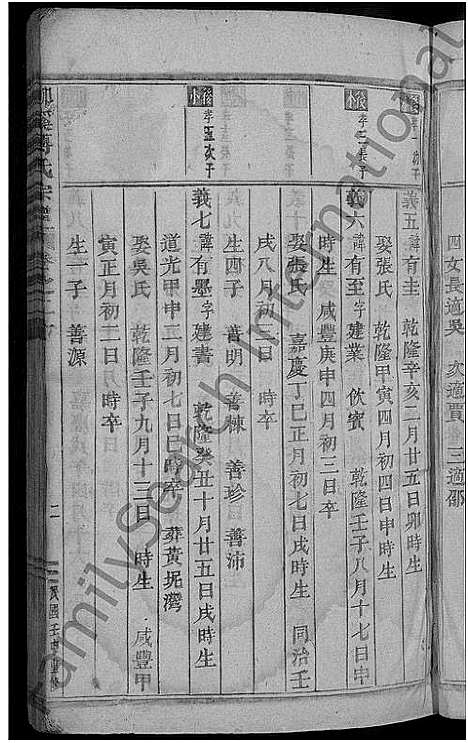 四女長適吳 次適賈 三適邵
義五諱有圭 乾隆辛亥二月廿五日卯時生
娶張氏 乾隆甲寅四月初四日申時生
後小 孝二長子
義六諱有至字建業 飲賓 乾隆壬子八月十七日申
時生 咸豐庚申四月初三日卒
娶張氏 嘉慶丁巳正月初七日戌時生 同治壬
戌八月初三日 時卒
生四子 善明 善棟 善珍 善沛
後小 孝三次子
義七諱有墨字建書 乾隆癸丑十月廿五日戌時生
道光甲申二月初七日巳時卒 葬黃坭灣
娶吳氏 乾隆壬子九月十三日 時生 咸豐甲
寅正月初二日 時卒
生一子 善源
氏宗
二
FamilySearch International